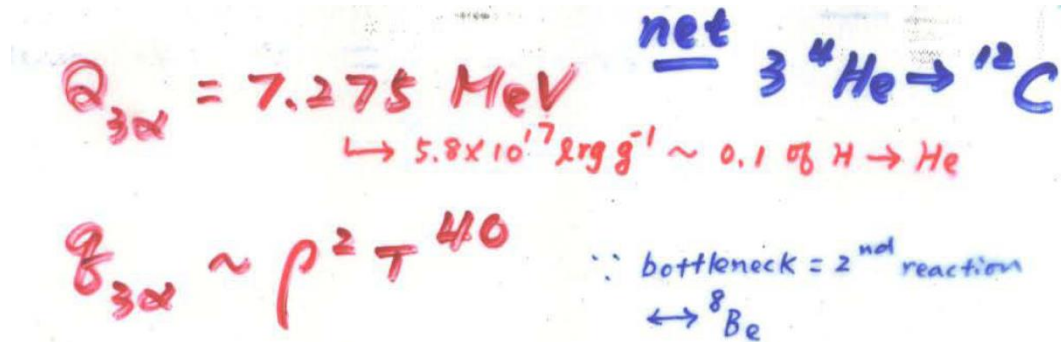 net
Q₃α = 7.275 MeV 3 ⁴He → ¹²C
↳ 5.8×10¹⁷ erg g⁻¹ ~ 0.1 of H → He
q₃α ~ ρ² T⁴⁰
∵ bottleneck = 2ⁿᵈ reaction
↔ ⁸Be